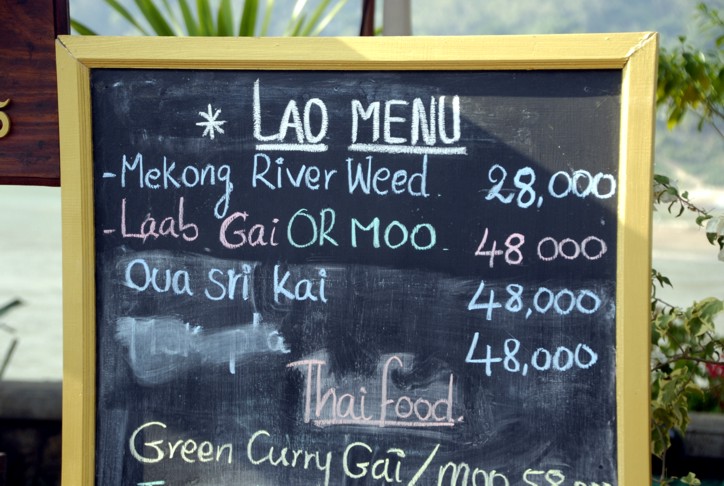 * LAO MENU
- Mekong River Weed 28,000
- Laab Gai OR MOO 48 000
Oua sri kai 48,000
48,000
Thai food.
Green Curry Gai/moo